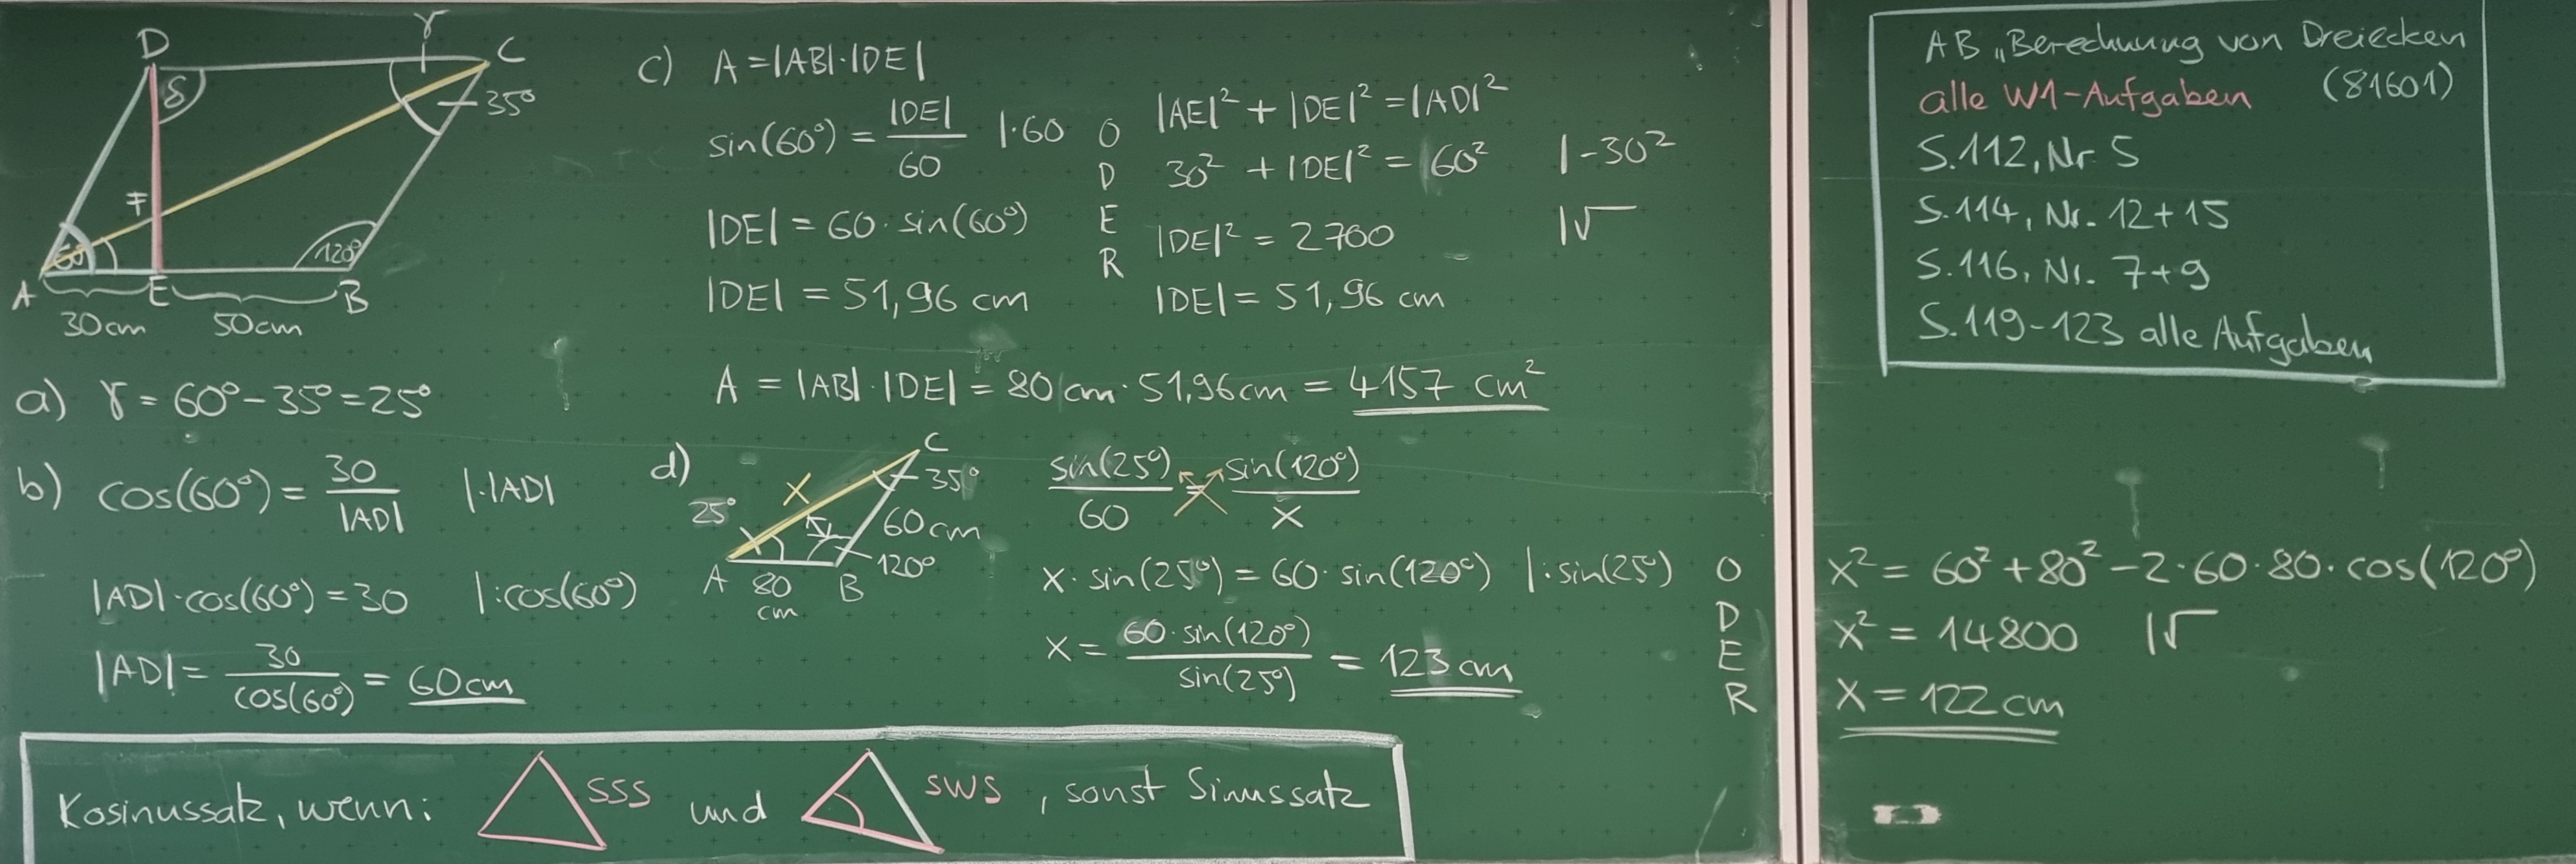 D γ C
δ 35°
F
60° 120°
A E B
30cm 50cm
a) γ = 60° - 35° = 25°
b) cos(60°) = 30/|AD| |·|AD|
|AD|·cos(60°) = 30 |:cos(60°)
|AD| = 30/cos(60°) = 60cm
c) A = |AB|·|DE|
sin(60°) = |DE|/60 |·60
|DE| = 60·sin(60°)
|DE| = 51,96 cm
ODER
|AE|² + |DE|² = |AD|²
30² + |DE|² = 60² |-30²
|DE|² = 2700 |√
|DE| = 51,96 cm
A = |AB|·|DE| = 80 cm · 51,96cm = 4157 cm²
d) C
x 35°
25° 60cm
120°
A 80 cm B
sin(25°)/60 = sin(120°)/x
x·sin(25°) = 60·sin(120°) |:sin(25°)
x = 60·sin(120°)/sin(25°) = 123 cm
ODER
x² = 60² + 80² - 2·60·80·cos(120°)
x² = 14800 |√
x = 122 cm
Kosinussatz, wenn: SSS und SWS, sonst Sinussatz
AB „Berechnung von Dreiecken
alle W1-Aufgaben (81601)
S.112, Nr 5
S.114, Nr. 12+15
S.116, Nr. 7+9
S.119-123 alle Aufgaben